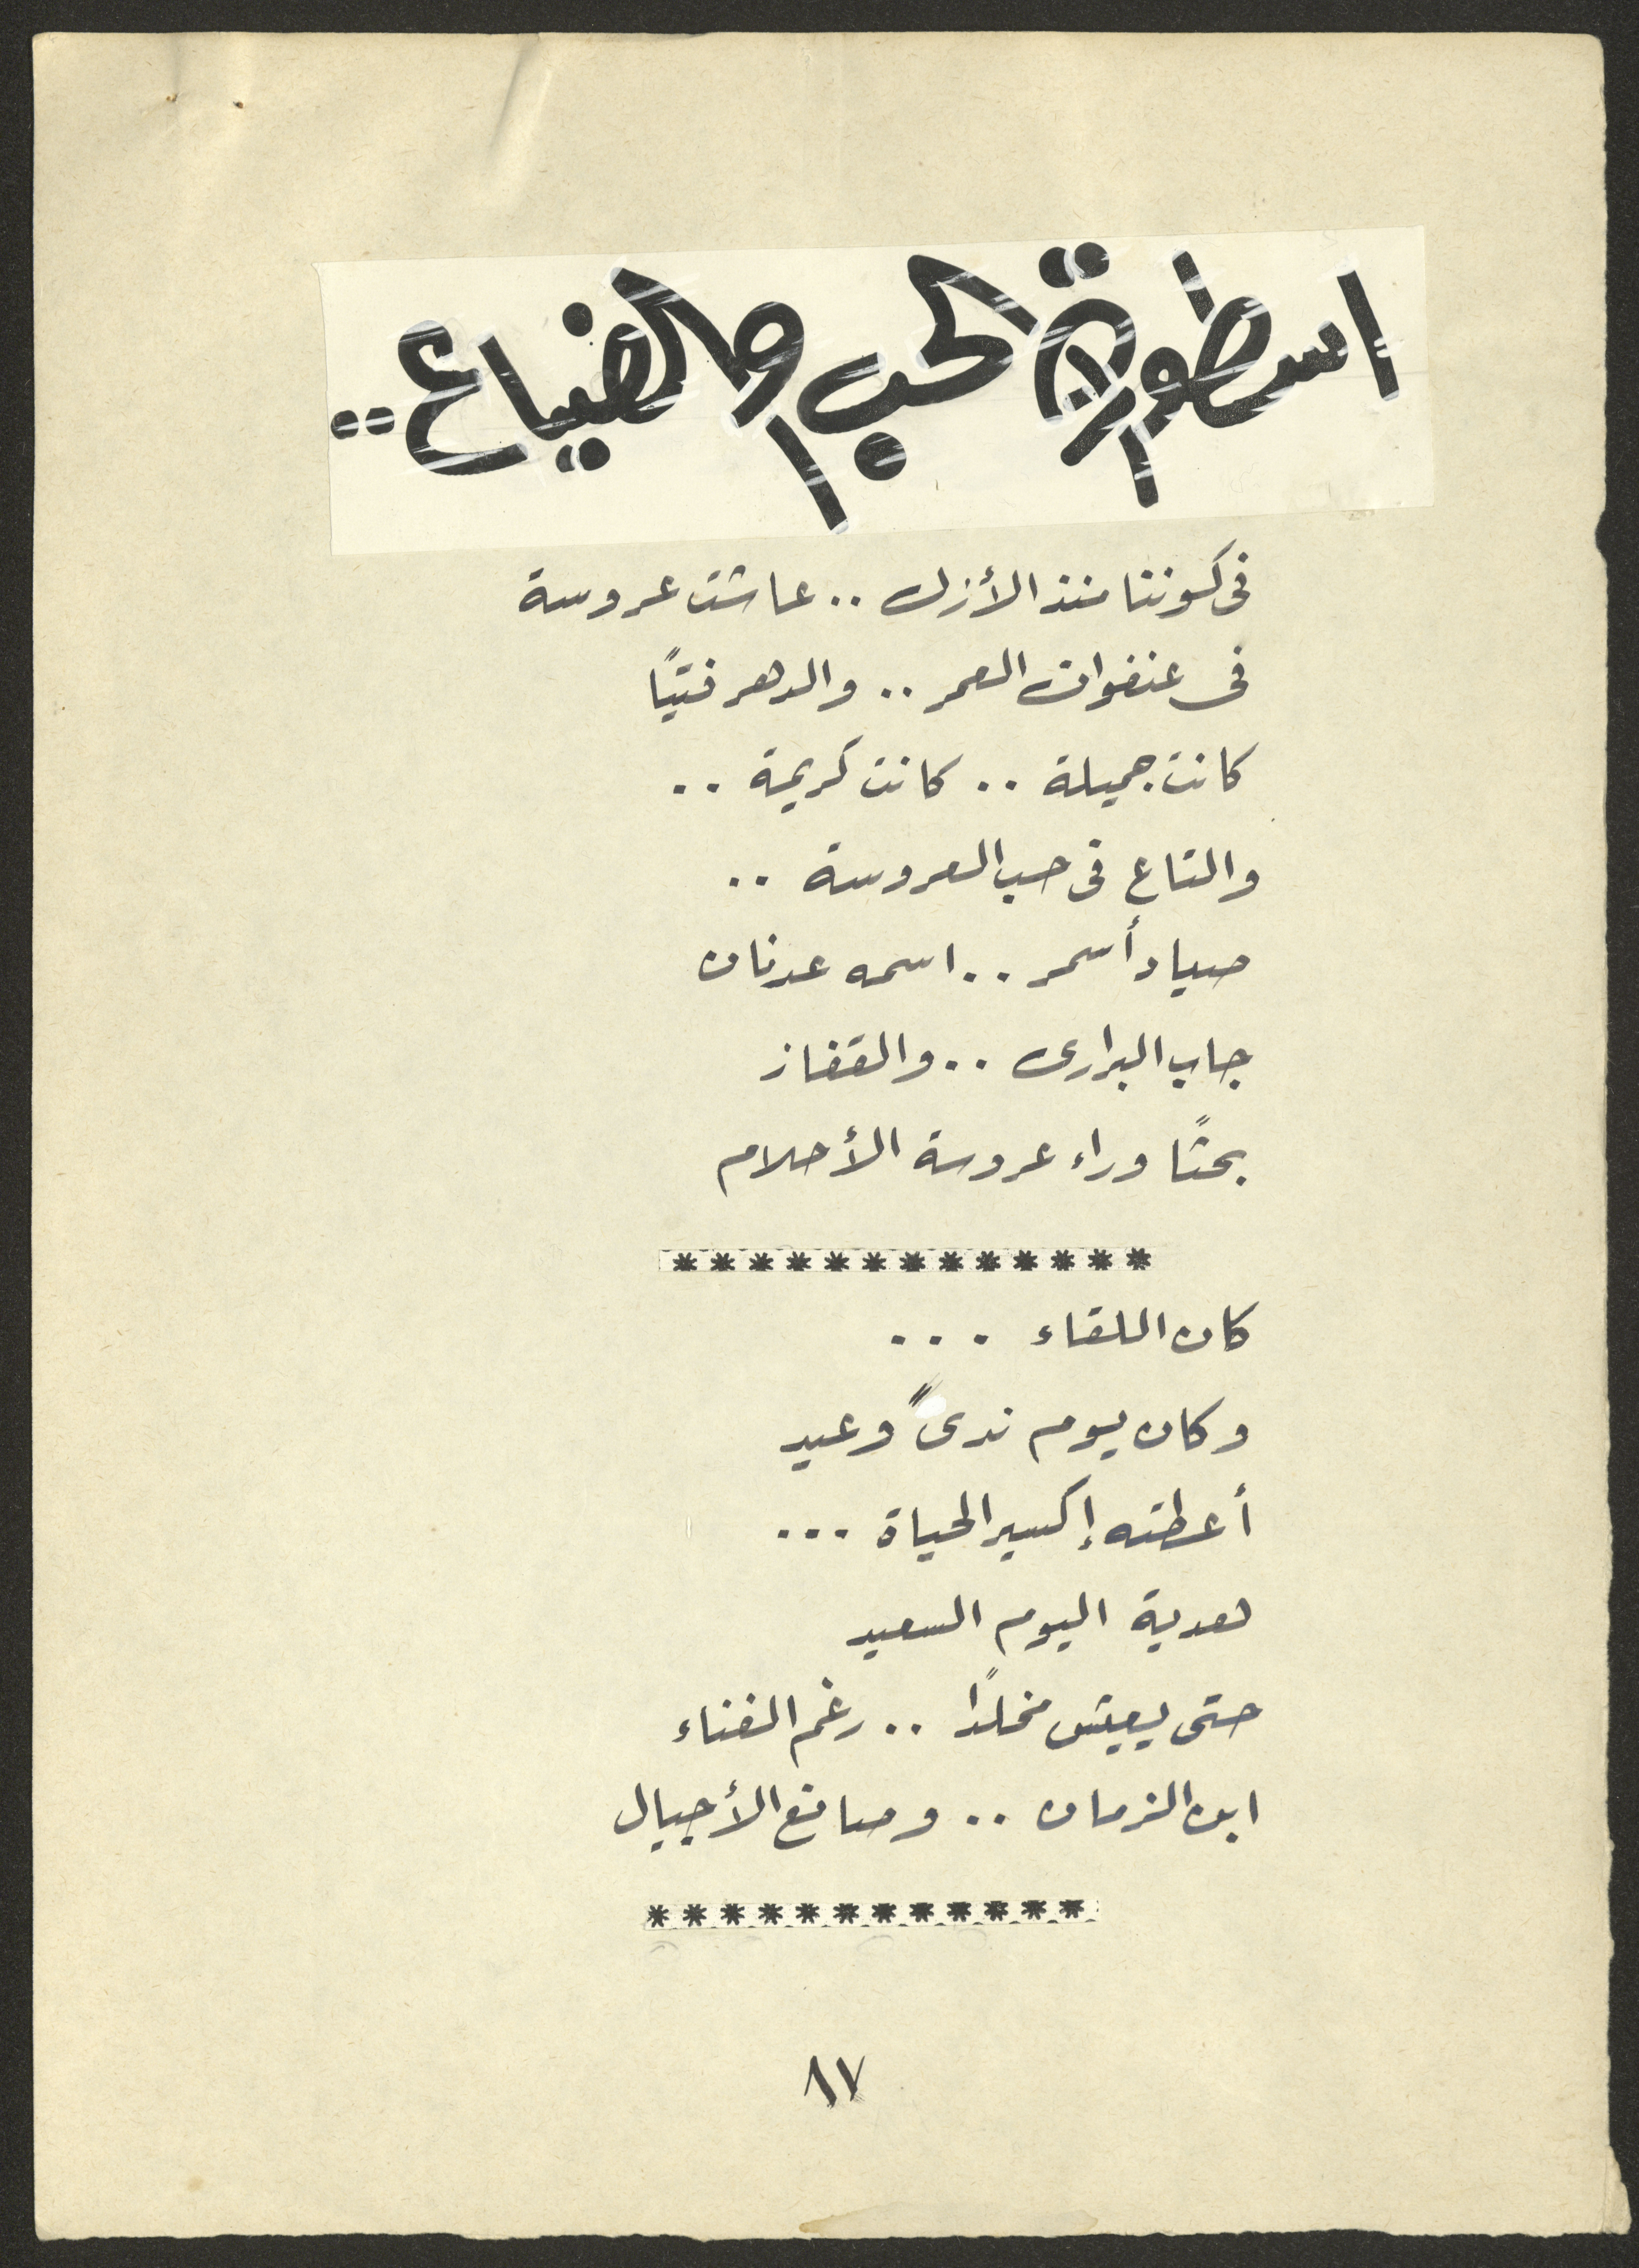 اسطورة الحب والضياع..
فى كوننا منذ الأزل .. عاشت عروسة
فى عنفوان العمر .. والدهر فتيًا
كانت جميلة .. كانت كريمة ..
والتاع فى حب العروسة ..
صياد أسمر .. اسمه عدنان
جاب البرارى .. والقفاز
بحثًا وراء عروسة الأحلام
*************
كان اللقاء ...
وكان يوم ندىً وعيد
أعطته إكسير الحياة ...
هدية اليوم السعيد
حتى يعيش مخلدًا .. رغم الفناء
ابن الزمان .. وصانع الأجيال
************
٨٧